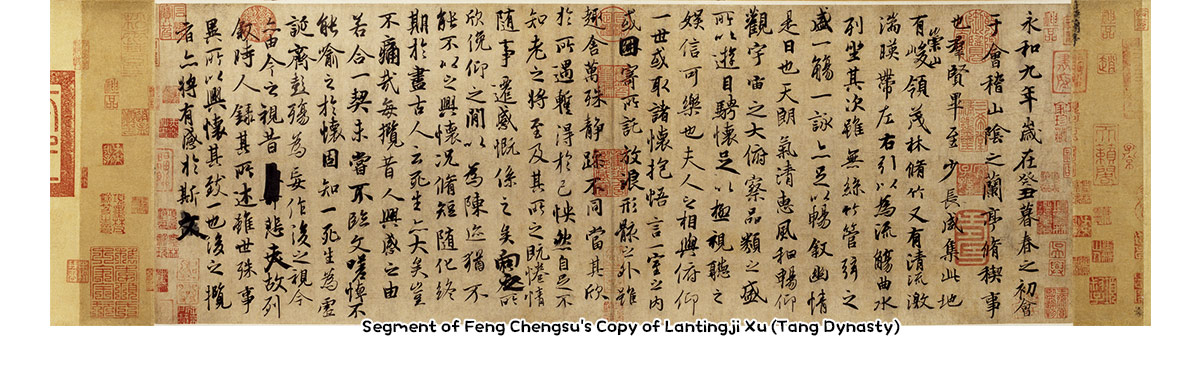 永和九年歲在癸丑暮春之初會
于會稽山陰之蘭亭脩稧事
也群賢畢至少長咸集此地
有崇山峻領茂林脩竹又有清流激
湍暎帶左右引以為流觴曲水
列坐其次雖無絲竹管弦之
盛一觴一詠亦足以暢敘幽情
是日也天朗氣清惠風和暢仰
觀宇宙之大俯察品類之盛
所以遊目騁懷足以極視聽之
娛信可樂也夫人之相與俯仰
一世或取諸懷抱悟言一室之內
或因寄所託放浪形骸之外雖
趣舍萬殊靜躁不同當其欣
於所遇暫得於己怏然自足不
知老之將至及其所之既惓情
隨事遷感慨係之矣向之所
欣俛仰之間以為陳迹猶不
能不以之興懷況脩短隨化終
期於盡古人云死生亦大矣豈
不痛哉每攬昔人興感之由
若合一契未嘗不臨文嗟悼不
能喻之於懷固知一死生為虛
誕齊彭殤為妄作後之視今
亦由今之視昔悲夫故列
敘時人錄其所述雖世殊事
異所以興懷其致一也後之攬
者亦將有感於斯文
Segment of Feng Chengsu's Copy of Lantingji Xu (Tang Dynasty)